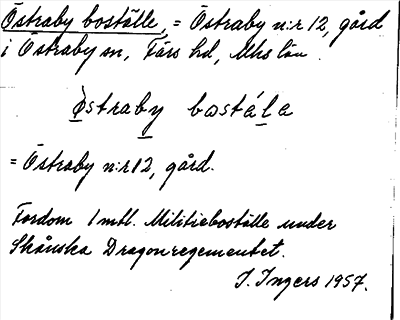 Östraby boställe, = Östraby n:r 12, gård
i Östraby sn, Färs hd, Mhs län.
Òstraby bostála
= Östraby n:r 12, gård.
Fordom 1 mtl. Militieboställe under
Skånska Dragonregementet.
I. Ingers 1957.